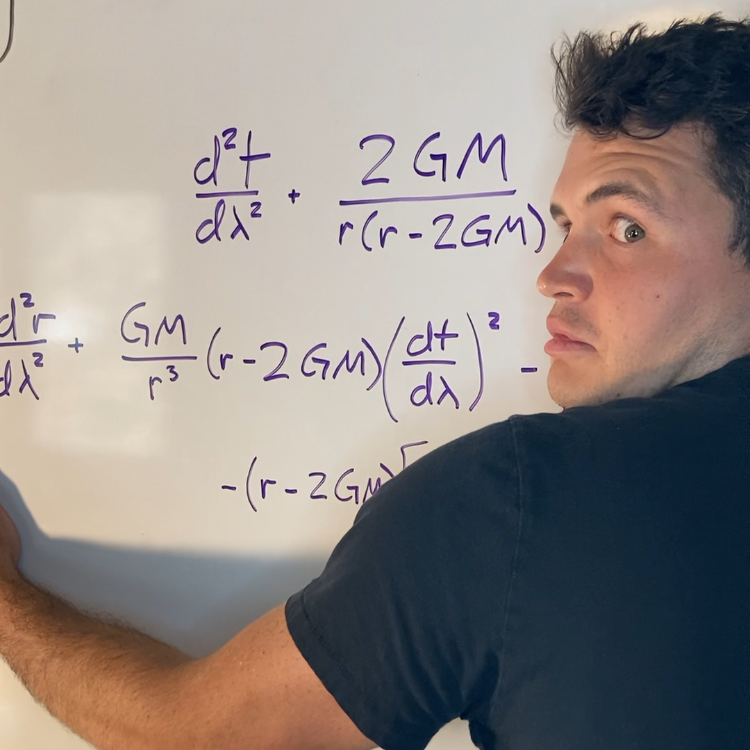 d²t/dλ² + 2GM/r(r-2GM)
d²r/dλ² + GM/r³ (r-2GM)(dt/dλ)² -
-(r-2GM)[